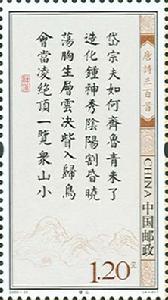 唐詩三百首
CHINA
中国邮政
岱宗夫如何齊魯青未了
造化鍾神秀陰陽割昏曉
蕩胸生層雲決眥入歸鳥
會當凌絕頂一覽衆山小
1.20元